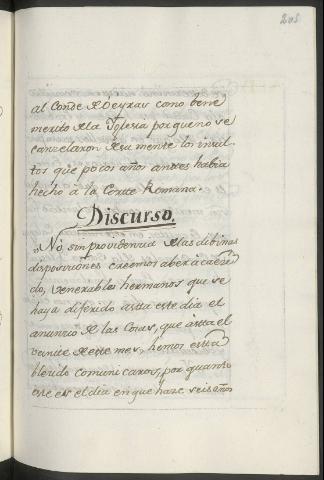 205
al Conde de Oeyras como bene
merito de la Iglesia porque no se
cancelaron de su mente los insul-
tos que pocos años antes habia
hecho à la Corte Romana.
Discurso.
„No sin providencia de las dibinas
disposiciones creemos aber àcaeci
do, venerables hermanos que se
haya diferido asta este dia el
anuncio de las cosas, que àsta el
veinte de este mes, hemos esta
blecido comunicaros, por quanto
este es el dia en que haze seis años